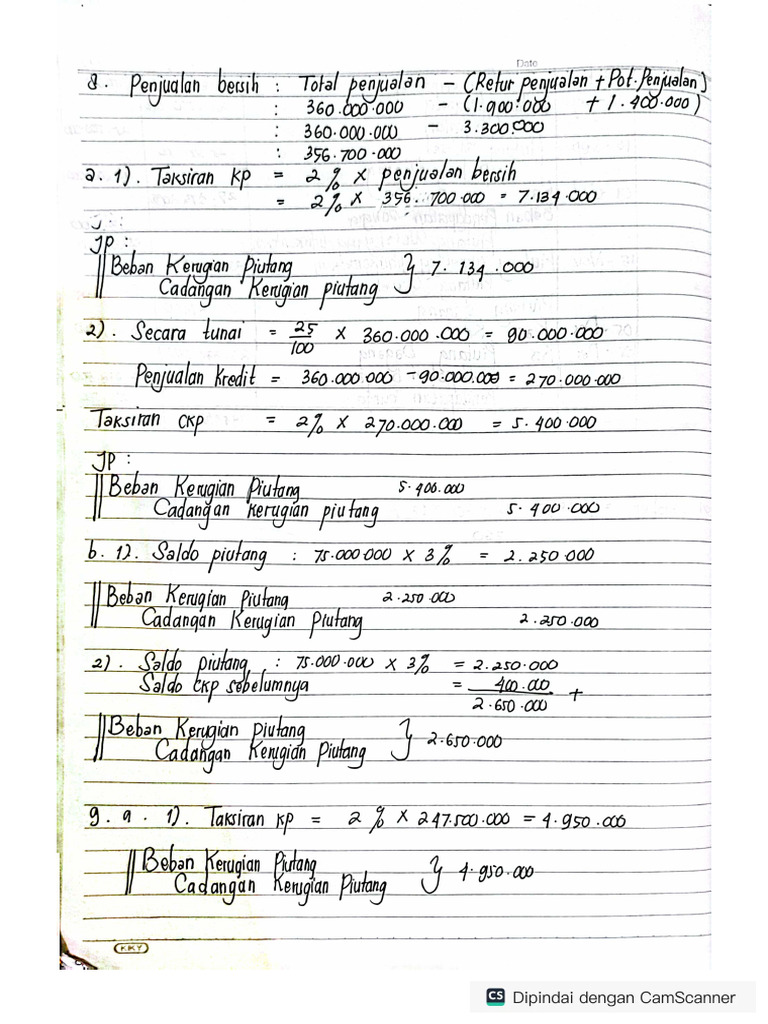 Date
8. Penjualan bersih : Total penjualan - (Retur penjualan + Pot. Penjualan)
: 360.000.000 - (1.900.000 + 1.400.000)
: 360.000.000 - 3.300.000
: 356.700.000
a. 1). Taksiran KP = 2% x penjualan bersih
= 2% x 356.700.000 = 7.134.000
JP :
Beban Kerugian Piutang } 7.134.000
Cadangan Kerugian piutang
2). Secara tunai = 25/100 x 360.000.000 = 90.000.000
Penjualan Kredit = 360.000.000 - 90.000.000 = 270.000.000
Taksiran CKP = 2% x 270.000.000 = 5.400.000
JP :
Beban Kerugian Piutang 5.400.000
Cadangan kerugian piutang 5.400.000
b. 1). Saldo piutang : 75.000.000 x 3% = 2.250.000
Beban Kerugian Piutang 2.250.000
Cadangan Kerugian Piutang 2.250.000
2). Saldo piutang : 75.000.000 x 3% = 2.250.000
Saldo CKP sebelumnya = 400.000 +
2.650.000
Beban Kerugian piutang } 2.650.000
Cadangan Kerugian Piutang
9. a. 1). Taksiran KP = 2% x 247.500.000 = 4.950.000
Beban Kerugian Piutang } 4.950.000
Cadangan Kerugian Piutang
KKY
CS Dipindai dengan CamScanner